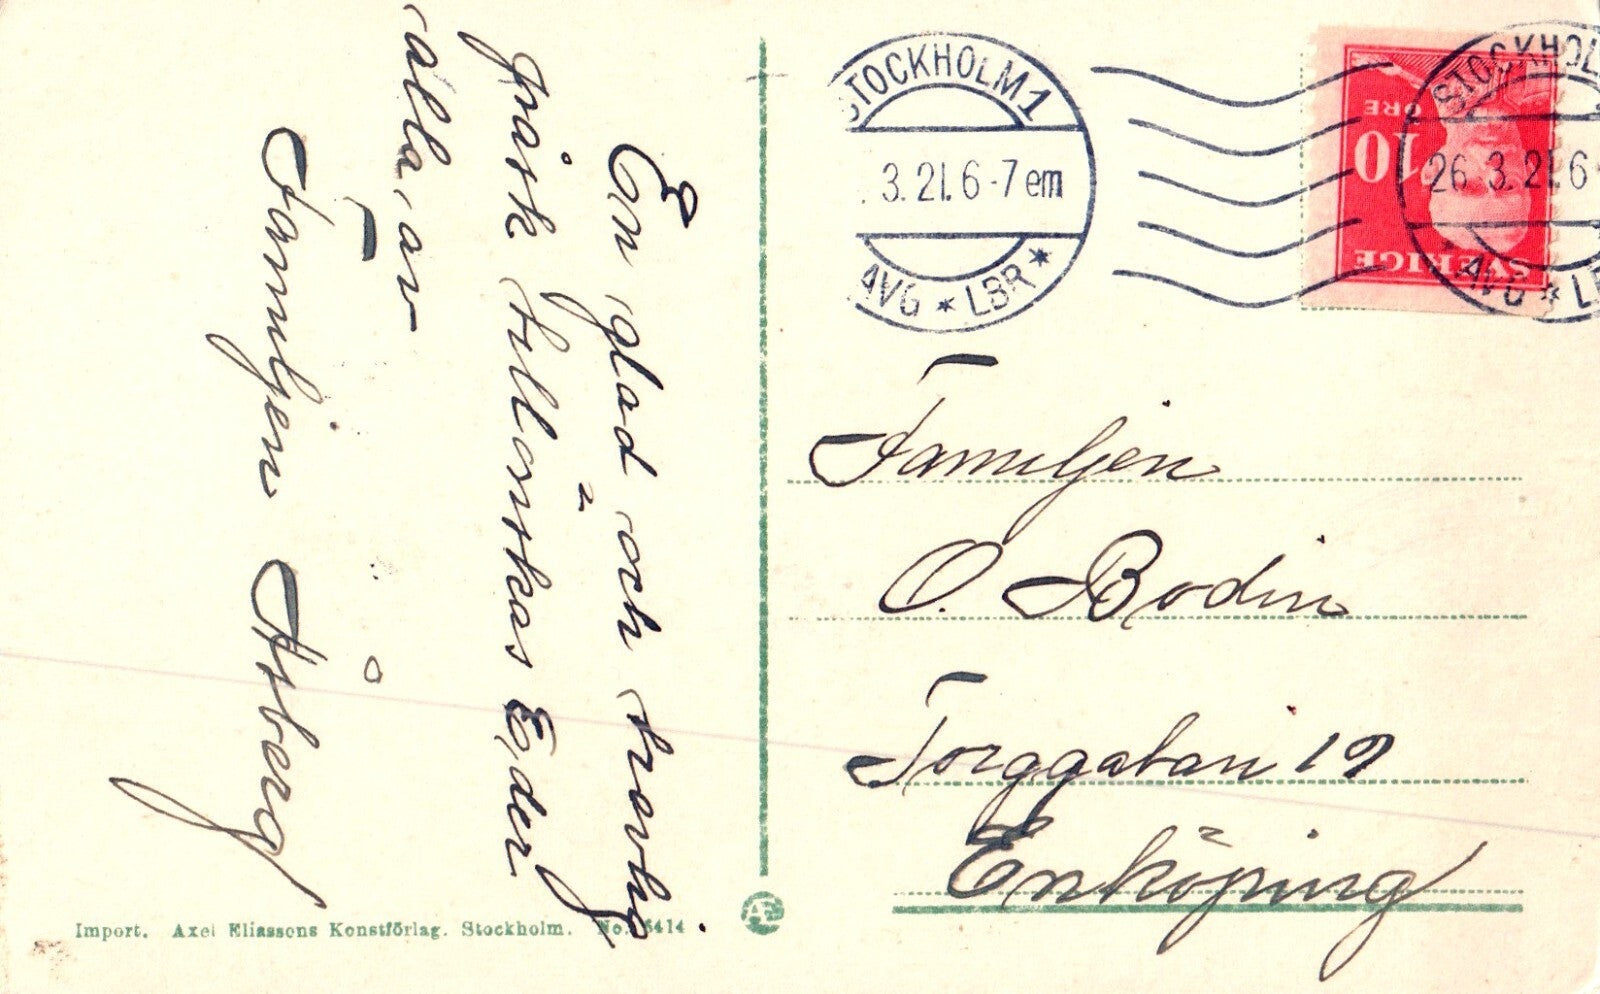 En glad och trevlig
påsk tillönskas Eder
alla, av
Familjen Åsberg
STOCKHOLM 1
3.21.6-7 em
AVG * LBR *
STOCKHOL
26.3.21.6-
AVG * L
10
ÖRE
SVERIGE
Familjen
O. Bodin
Torggatan 19
Enköping
Import. Axel Eliassons Konstförlag. Stockholm. No. 6414
Æ